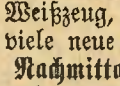 Weißzeug,
viele neue
Nachmitta